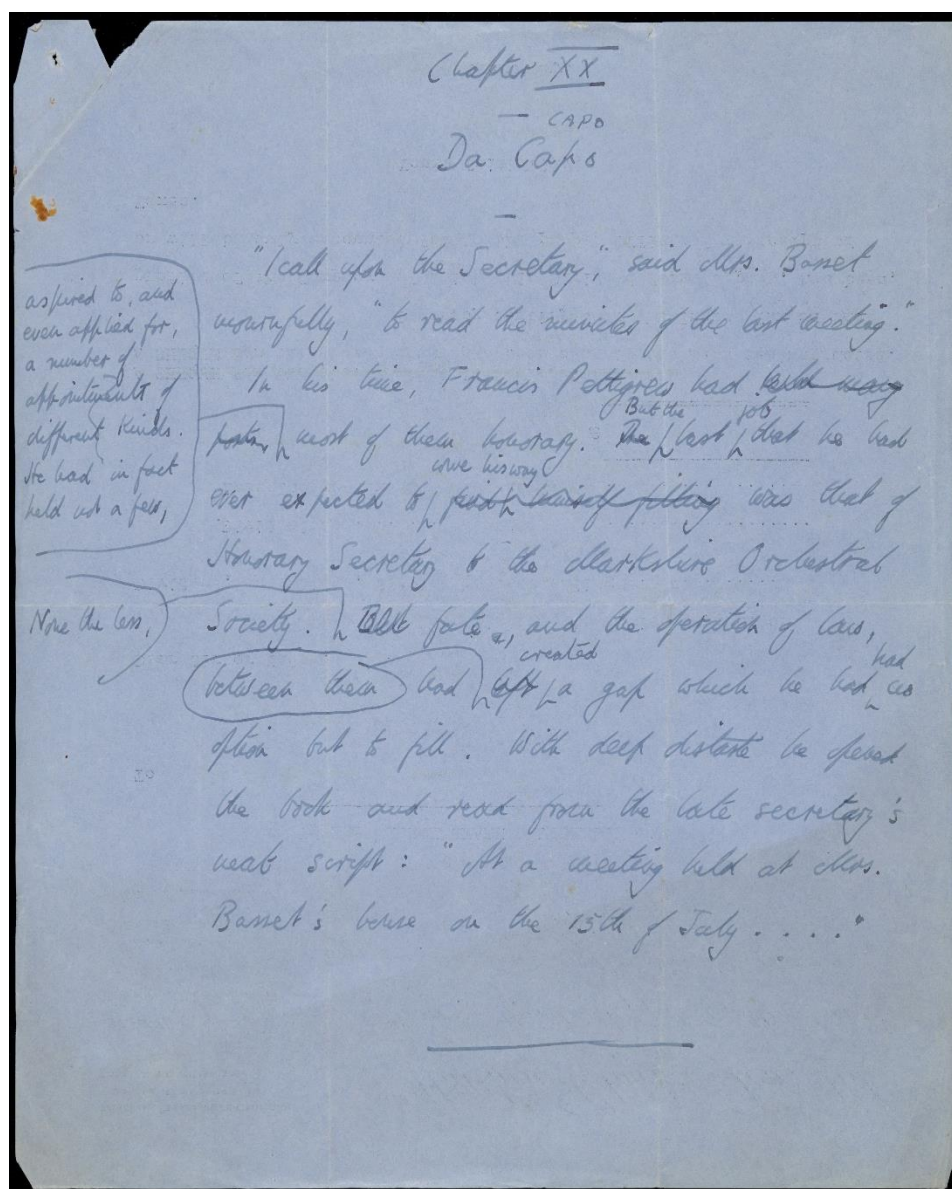 Chapter XX
CAPO
Da Capo
"I call upon the Secretary", said Mrs. Basset
mournfully, "to read the minutes of the last meeting."
In his time, Francis Pettigrew had held many
aspired to, and
even applied for,
a number of
appointments of
different kinds.
He had in fact
held not a few,
posts, most of them honorary. The But the last job that he had
ever expected to find himself filling come his way was that of
Honorary Secretary to the Markshire Orchestral
None the less,
Society. But fate, and the operation of law,
between them had left created a gap which he had had no
option but to fill. With deep distaste he opened
the book and read from the late secretary's
neat script: "At a meeting held at Mrs.
Basset's house on the 15th of July . . . ."